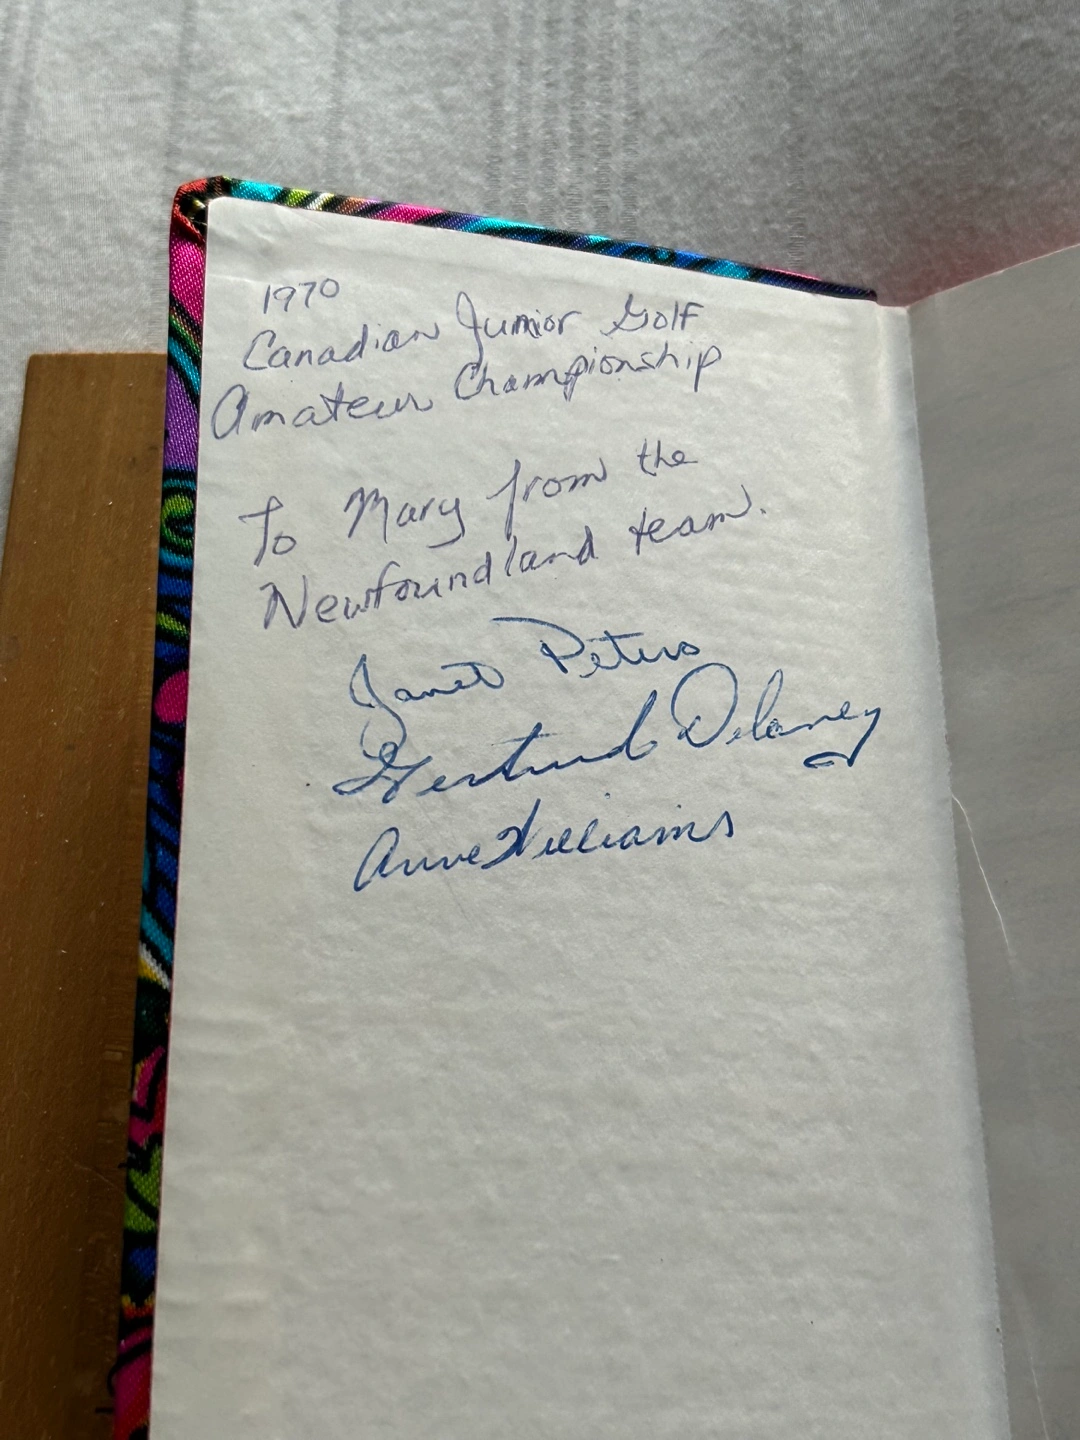 1970
Canadian Junior Golf
Amateur Championship
To Mary from the
Newfoundland team.
Janet Peters
Gertrude Delaney
Anne Williams